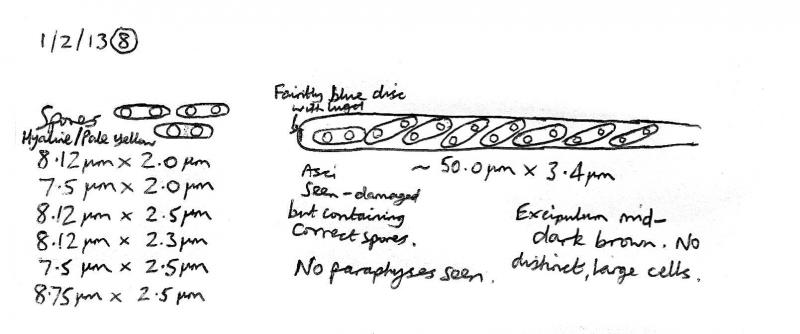 1/2/13 8
Spores
Hyaline/Pale yellow
8.12 µm x 2.0 µm
7.5 µm x 2.0 µm
8.12 µm x 2.5 µm
8.12 µm x 2.3 µm
7.5 µm x 2.5 µm
8.75 µm x 2.5 µm
Faintly blue disc
with lugol
~ 50.0 µm x 3.4 µm
Asci
seen - damaged
but containing
correct spores.
No paraphyses seen.
Excipulum mid-
dark brown. No
distinct, large cells.